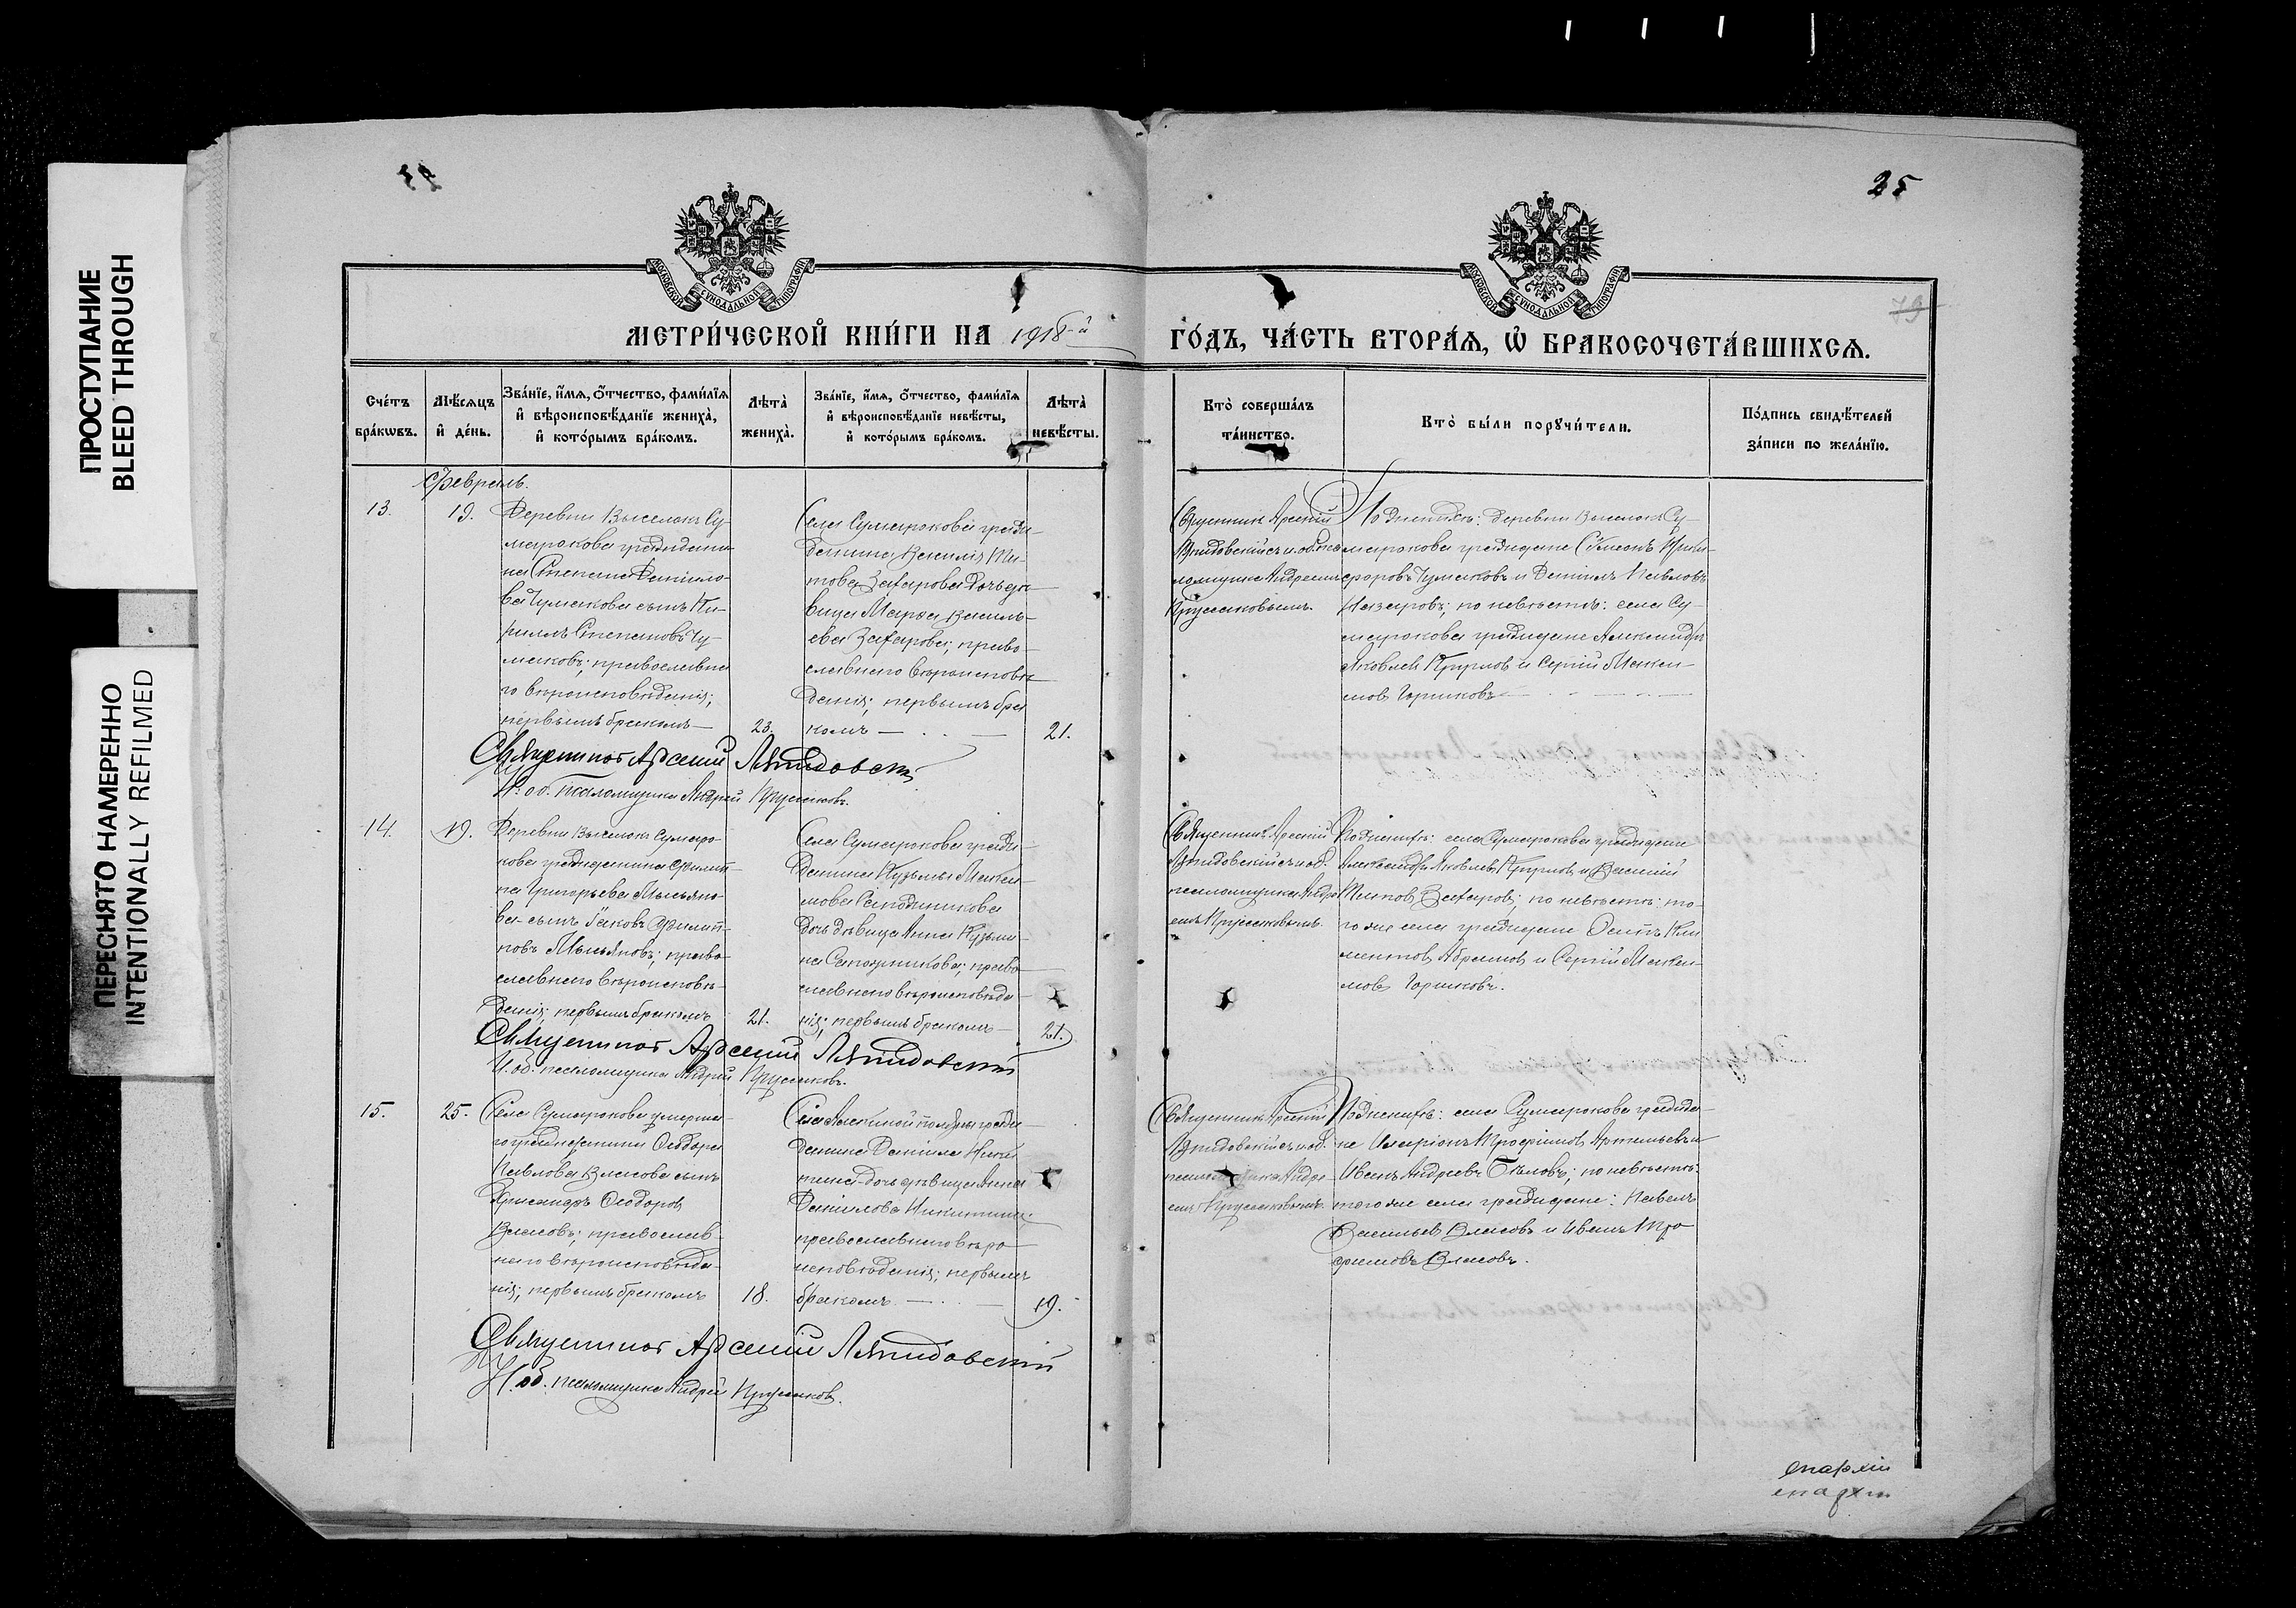 ПРОСТУПАНИЕ
BLEED THROUGH
ПЕРЕСНЯТО НАМЕРЕННО
INTENTIONALLY REFILMED
25
79
МОСКОВСКОЙ СѴНОДАЛЬНОЙ ТИПОГРАФІИ
МОСКОВСКОЙ СѴНОДАЛЬНОЙ ТИПОГРАФІИ
МЕТРИ́ЧЕСКОЙ КНИ́ГИ НА 1918-й
ГО́ДЪ, ЧА́СТЬ ВТОРА́Я, Ѽ БРАКОСОЧЕТА́ВШИХСЯ.
Сче́тъ бра́кѡвъ.
Мѣ́сяцъ и҆ де́нь.
Зва́нїе, и҆́мя, ѻ҆́тчество, фами́лїя и҆ вѣроисповѣ́данїе жениха̀, и҆ кото́рымъ бра́комъ.
Лѣта̀ жениха̀.
Зва́нїе, и҆́мя, ѻ҆́тчество, фами́лїя и҆ вѣроисповѣ́данїе невѣ́сты, и҆ кото́рымъ бра́комъ.
Лѣта̀ невѣ́сты.
Кто̀ соверша́лъ та́инство.
Кто̀ бы́ли порꙋчи́тели.
По́дпись свидѣ́телей за́писи по жела́нїю.
Февраль.
13.
19.
Деревни Выселокъ Су-
марокова граждани-
на Степана Данило-
ва Чумакова сынъ Ки-
риллъ Степановъ Чу-
маковъ; православна
го вѣроисповѣданія;
первымъ бракомъ
23.
Села Сумарокова граж-
данина Василія Ти-
това Захарова дочь дѣ-
вица Марѳа Василь-
ева Захарова; право-
славнаго вѣроисповѣ-
данія; первымъ бра
комъ
21.
Священникъ Арсеній
псаломщика Андреемъ
Прусаковымъ.
По женихѣ: деревни Выселокъ Су-
марокова граждане Симеонъ
Чумаковъ и Даніилъ Павловъ
Назаровъ; по невѣстѣ: села Су-
марокова граждане Александръ
Яковлевъ и Сергій Макси-
мовъ Горшковъ
Священникъ Арсеній
И. об. псаломщика Андрей Прусаковъ.
14.
19.
Деревни Выселокъ Сумаро-
кова гражданина Филип-
па Григорьева Мысьяко-
ва сынъ Іаковъ Филип-
повъ; право-
славнаго вѣроисповѣ-
данія; первымъ бракомъ
21.
Села Сумарокова граж-
данина Кузьмы Макси-
мова Сапожникова
дочь дѣвица Анна Кузьми-
на Сапожникова; право-
славнаго вѣроисповѣда-
нія; первымъ бракомъ
21.
Священникъ Арсеній
псаломщика Андре-
емъ Прусаковымъ.
По женихѣ: села Сумарокова граждане
Александръ Яковлевъ и Василій
Титовъ Захаровъ; по невѣстѣ: то-
го же села граждане Осипъ Кли
ментовъ Абрамовъ и Сергій Макси-
мовъ Горшковъ.
Священникъ Арсеній
И. об. псаломщика Андрей Прусаковъ.
15.
25.
Села Сумарокова умерша-
го гражданина Ѳеодора
Павлова Власова сынъ
Александръ Ѳеодоровъ
Власовъ; православ-
наго вѣроисповѣда-
нія; первымъ бракомъ
18.
Села граж-
данина Даніила Ники
тина дочь дѣвица Анна
Данилова Никитина
православнаго вѣро
исповѣданія; первымъ
бракомъ
19.
Священникъ Арсеній
Андре-
емъ Прусаковымъ.
По женихѣ: села Сумарокова гражда-
не Иларіонъ Трофимовъ Артемьевъ и
Иванъ Андреевъ Бѣловъ; по невѣстѣ:
того же села граждане: Павелъ
Васильевъ Власовъ и Иванъ Тро
фимовъ Власовъ.
Священникъ Арсеній
И. об. псаломщика Андрей Прусаковъ.
епархіи
епархіи